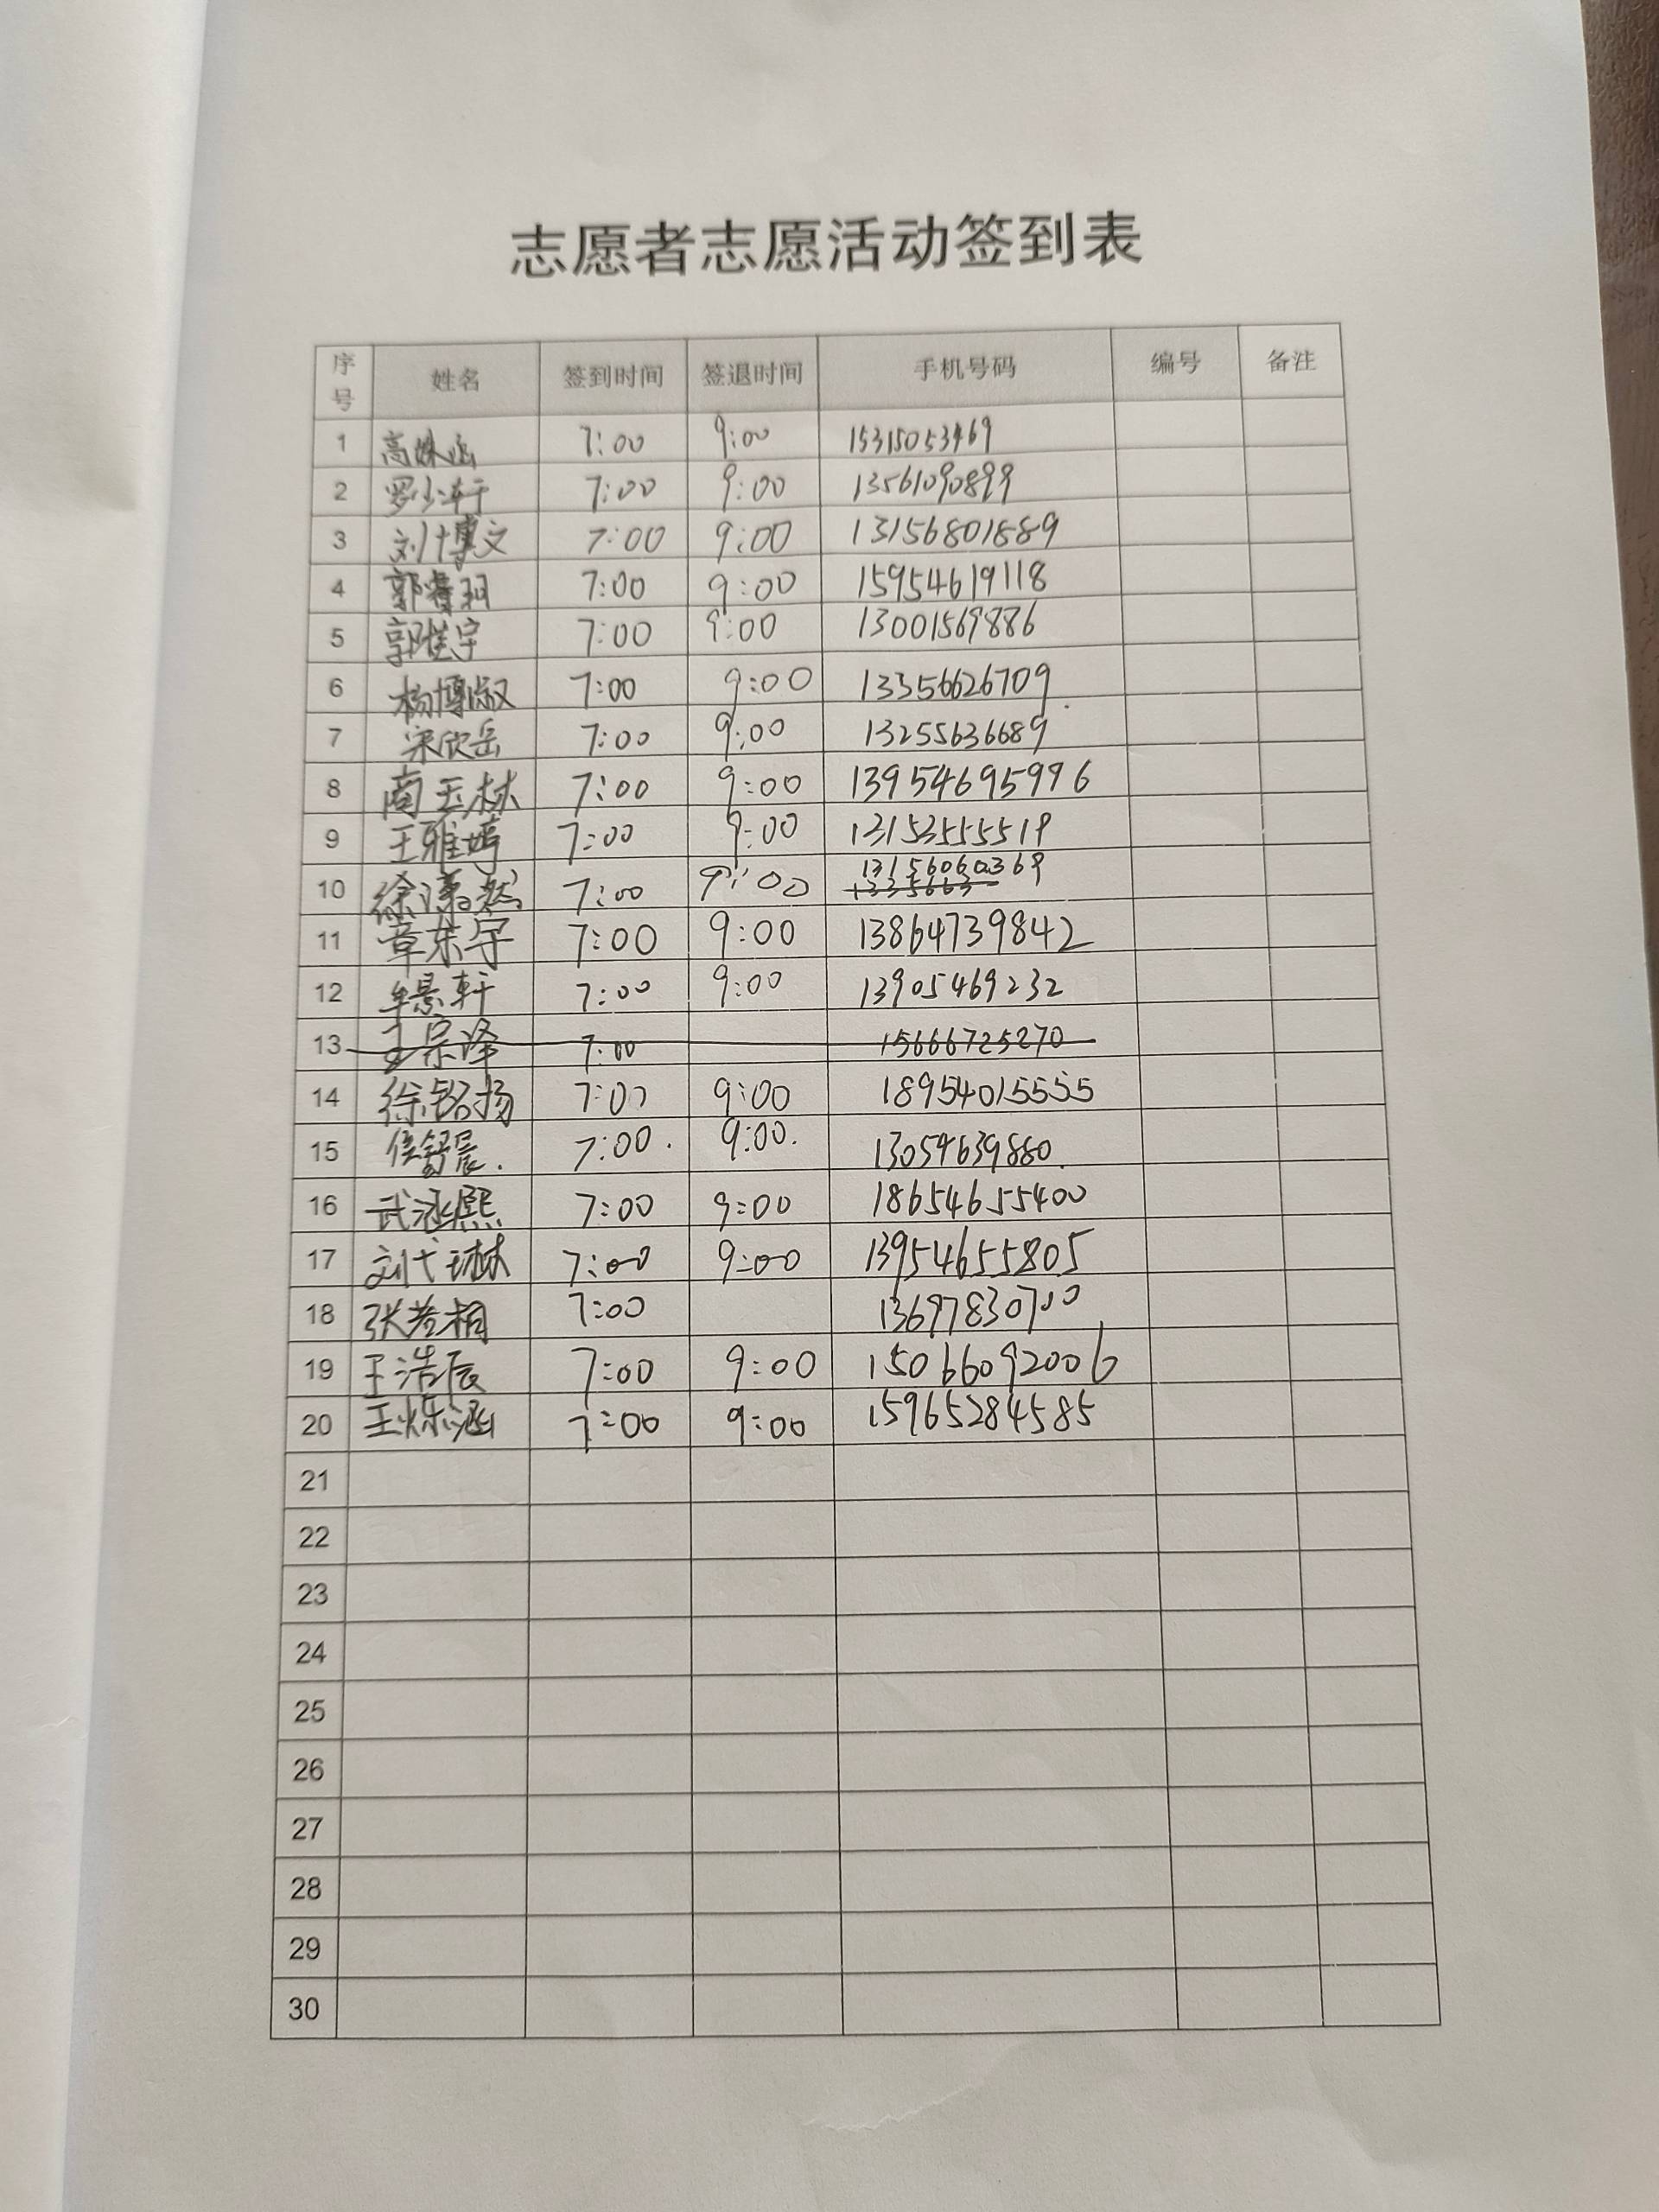 志愿者志愿活动签到表
序号 姓名 签到时间 签退时间 手机号码 编号 备注
1 高姝涵 7:00 9:00 15315053469
2 罗少轩 7:00 9:00 13561090899
3 刘博文 7:00 9:00 13156801889
4 郭睿羽 7:00 9:00 15954619118
5 郭佳宇 7:00 9:00 13001569886
6 杨博淑 7:00 9:00 13356626709
7 宋欣岳 7:00 9:00 13255636689
8 商玉林 7:00 9:00 13954695996
9 王雅婷 7:00 9:00 13153555519
10 徐潇然 7:00 9:00 13156060369
1335663
11 章东宇 7:00 9:00 13864739842
12 牟景轩 7:00 9:00 13905469232
13 王宗泽 7:00 15666725270
14 徐铭扬 7:00 9:00 18954015555
15 侯舒晨. 7:00. 9:00. 13054639880.
16 武涵熙 7:00 9:00 18654655400
17 刘弋琳 7:00 9:00 13954655805
18 张桐 7:00 13697830700
19 王浩辰 7:00 9:00 15066092006
20 王烁涵 7:00 9:00 15965284585
21
22
23
24
25
26
27
28
29
30